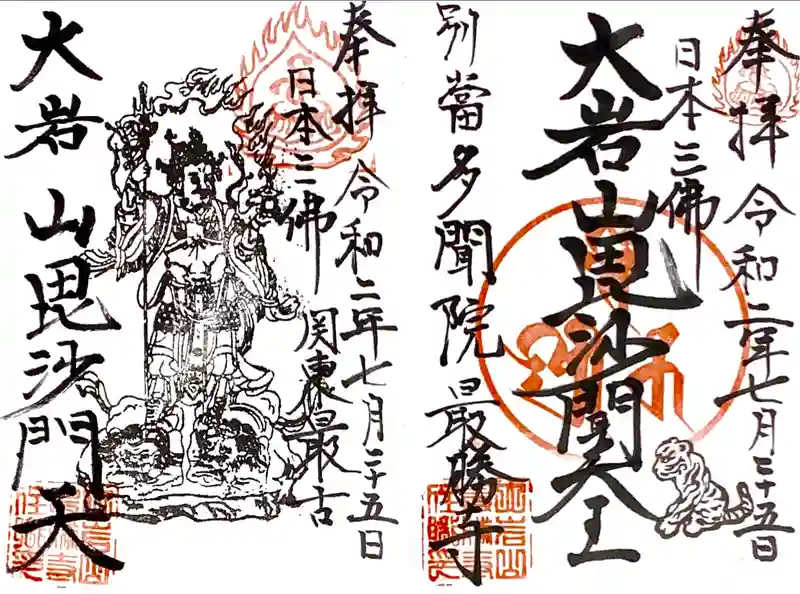 奉拝
令和二年七月二十五日
日本三佛
大岩山毘沙門天王
別當多聞院最勝寺
奉拝
令和二年七月二十五日
日本三佛
関東最古
大岩山毘沙門天